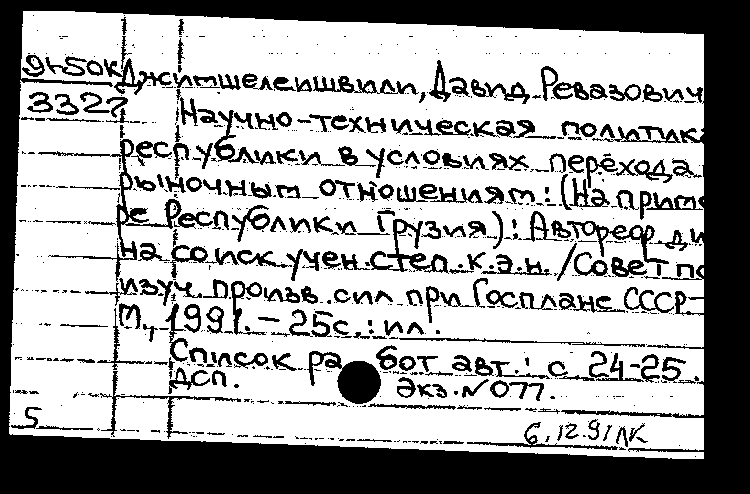 91-50к Джитшелеишвили, Давид Ревазович
3327 Научно-техническая политика
республики в условиях перехода
рыночным отношениям: (На приме
ре Республики Грузия): Автореф. ди
на соиск. учен. степ. к.э.н. /Совет по
изуч. произв. сил при Госплане СССР.-
М., 1991. - 25с.: ил.
Список работ авт.: с 24-25.
ДСП. Экз. N 077.
5 6.12.91